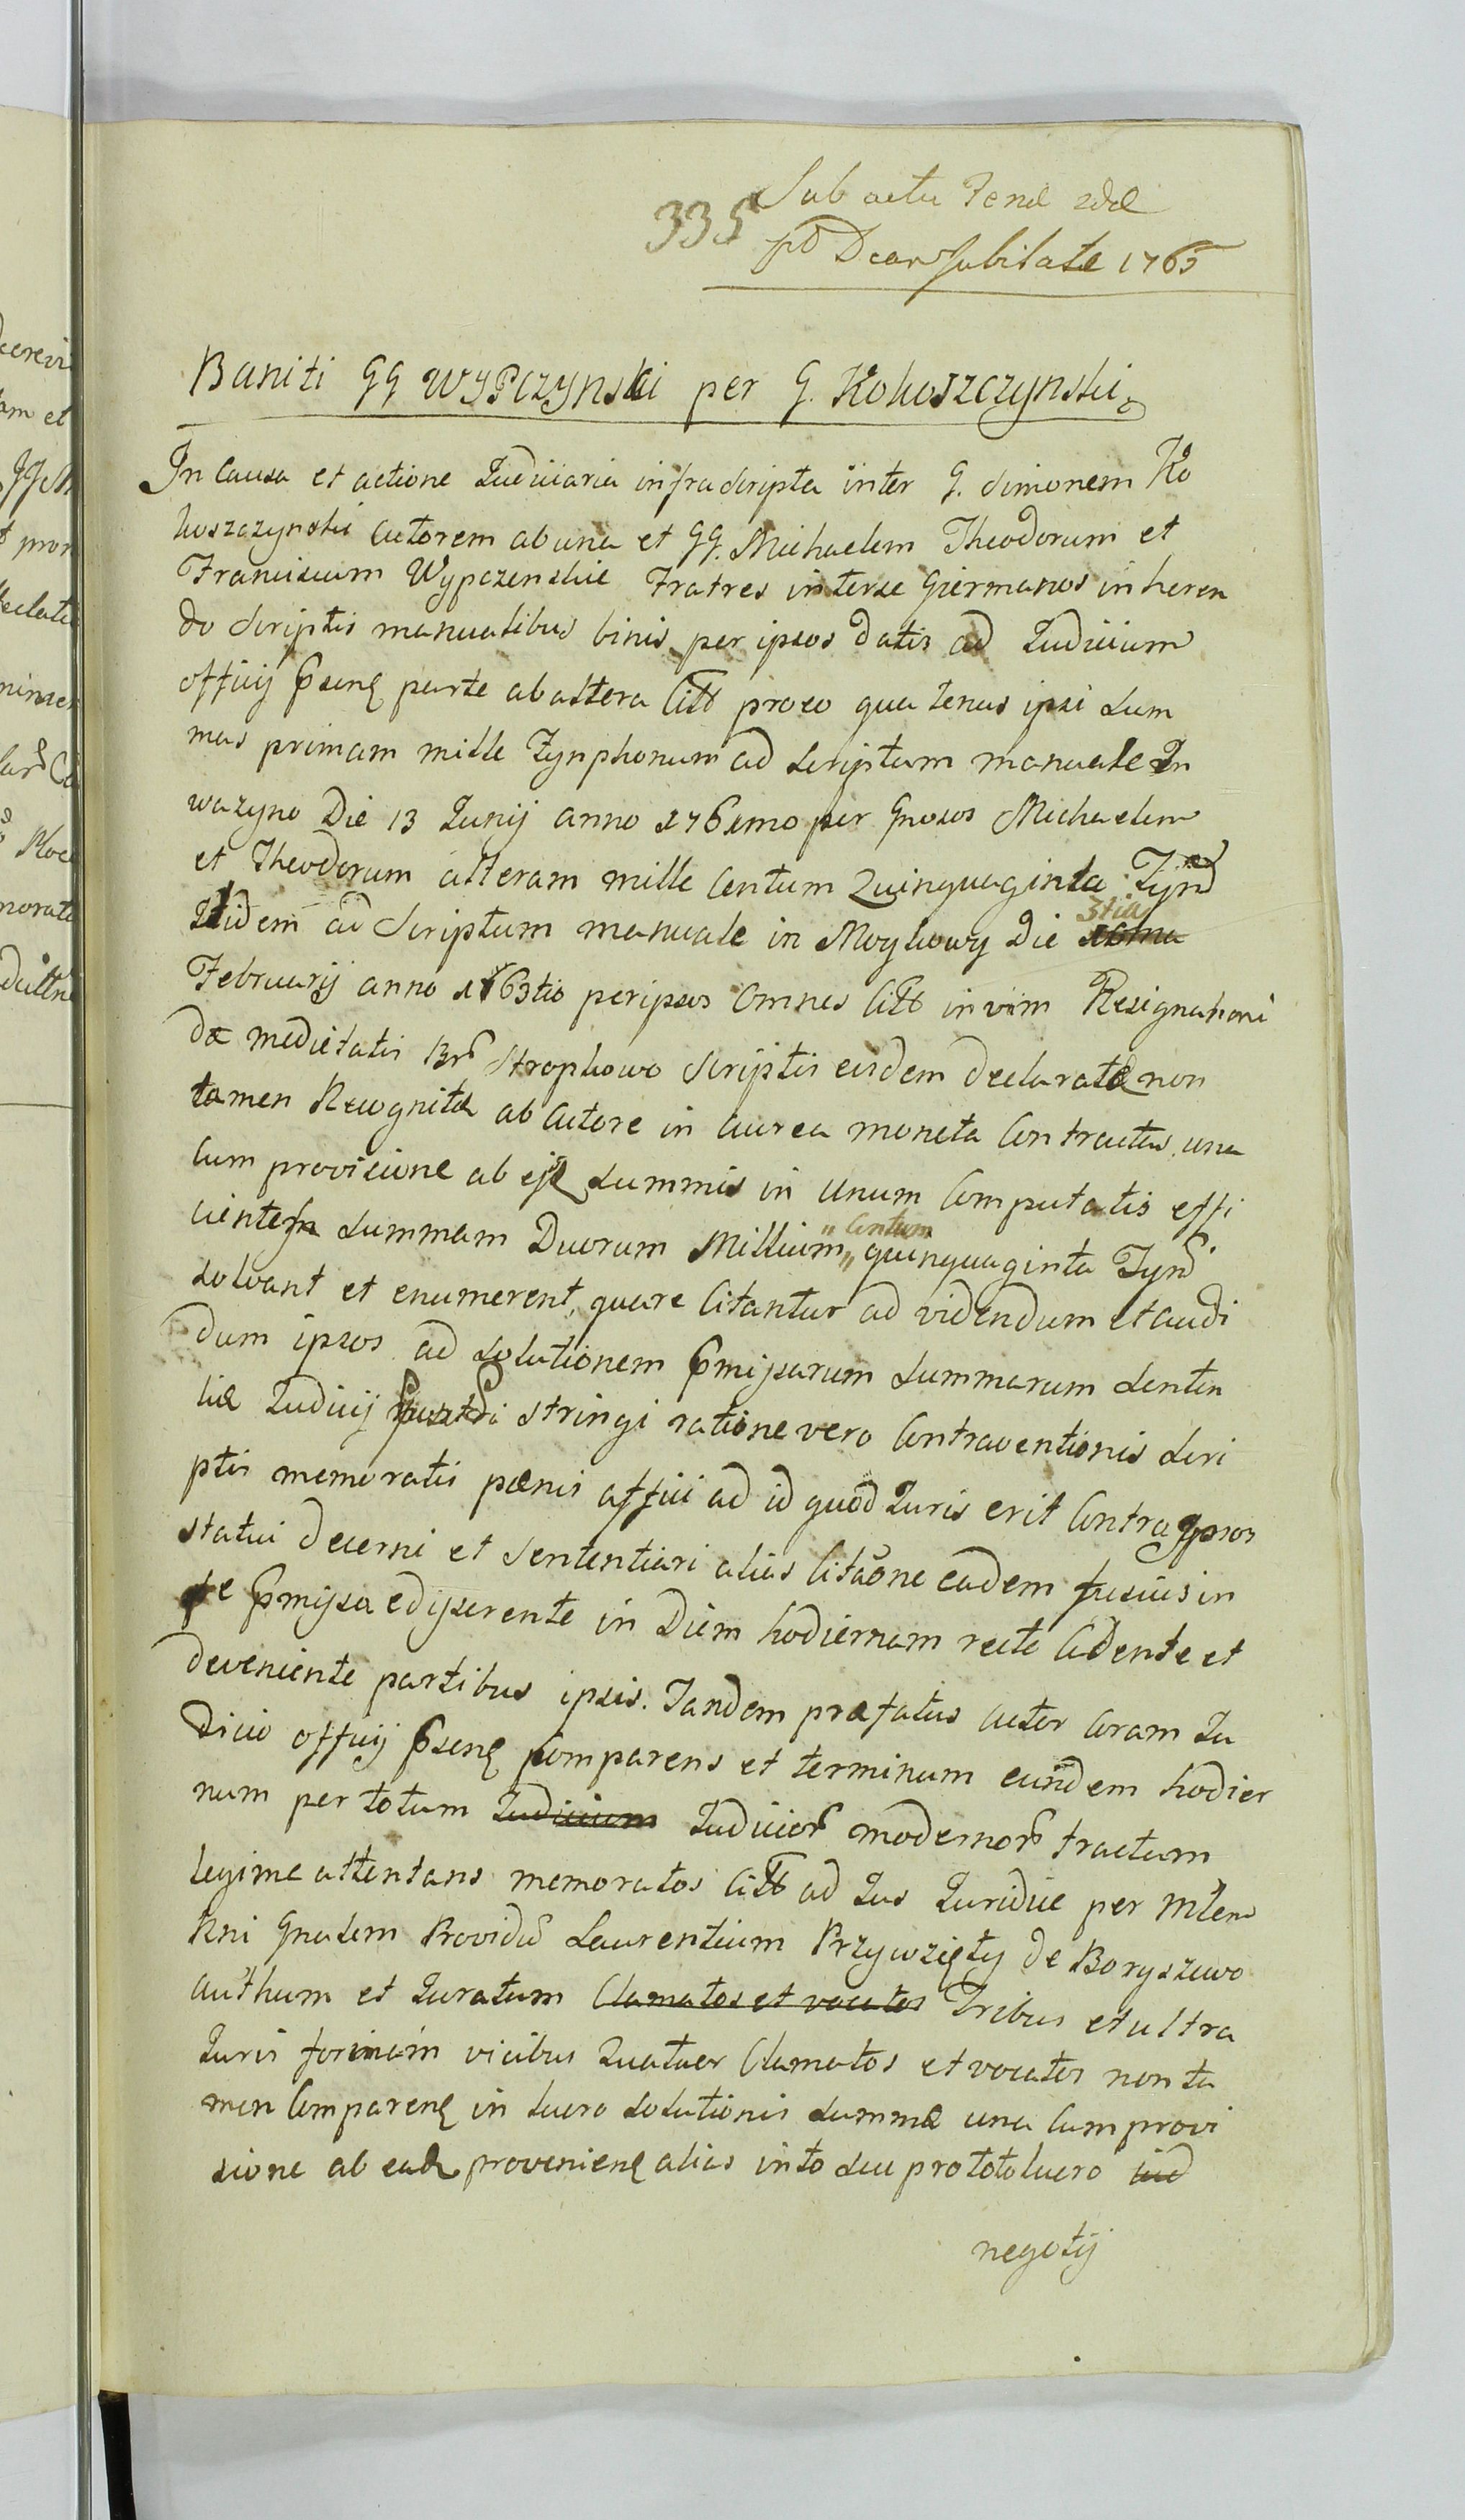 335 Sub actu Feriæ 2dæ
pt Dcam Jubilate 1765
Baniti GG Wypczynski per G. Kokoszczynski.
In Causa et actione Judiciaria infrascripta inter G. Simonem Ko
koszczynski Actorem ab una et GG. Michaelem Theodorum et
Franciscum Wypczenskie Fratres inter se Giermanos inheren
do Scriptis manualibus binis per ipsos datis ad Judicium
officij pseng parte ab altera Citt pro eo qua tenus ipsi Sum
mas primam mille Tynphonum ad Scriptum manuale In
wazyno Die 13 Junij anno 1761mo per Gnosos Michaelem
et Theodorum alteram mille Centum Quinquaginta Tynd
Itidem ad Scriptum manuale in Moykowy Die 3tia
Februarij anno 1763tio per ipsos Omnes Citt in vim Resignationi
dæ medietatis Br Stropkowo Scriptis eisdem declaratæ non
tamen Recognitæ ab Actore in aurea moneta Contractas, una
Cum provisione ab ejs Summis in unum Computatis effi
cientem Summam Duorum Millium "Centum" quinquaginta Tynd.
Solvant et enumerent, quare Citantur ad videndum et audi
dum ipsos ad Solutionem pmissarum Summarum Senten
tia Judicij stringi ratione vero Contraventionis Scri
ptis memoratis pænis affici ad id quod Juris erit Contra ipsos
statui decerni et Sententiari alias Citaone eadem fusius in
se pmissa edisserente in Diem hodiernam recte Cadente et
deveniente partibus ipsis. Tandem præfatus Actor Coram Ju
dicio officij pseng Comparens et terminum eundem hodier
num per totum Judicium Judicior modernor tractum
legime attentans memoratos Citt ad Jus Juridice per Mtem
Rni Gnalem Providu Laurentium Przywzięty de Boryszewo
authum et Juratum Clamatos et vocatos Tribus et ultra
Juris formam vicibus Quatuor Clamatos et vocatos non ta
men Compareng in lucro Solutionis Summæ una Cum provi
sione ab eadæ provenieng alias in to Seu pro toto lucro iud
negotij